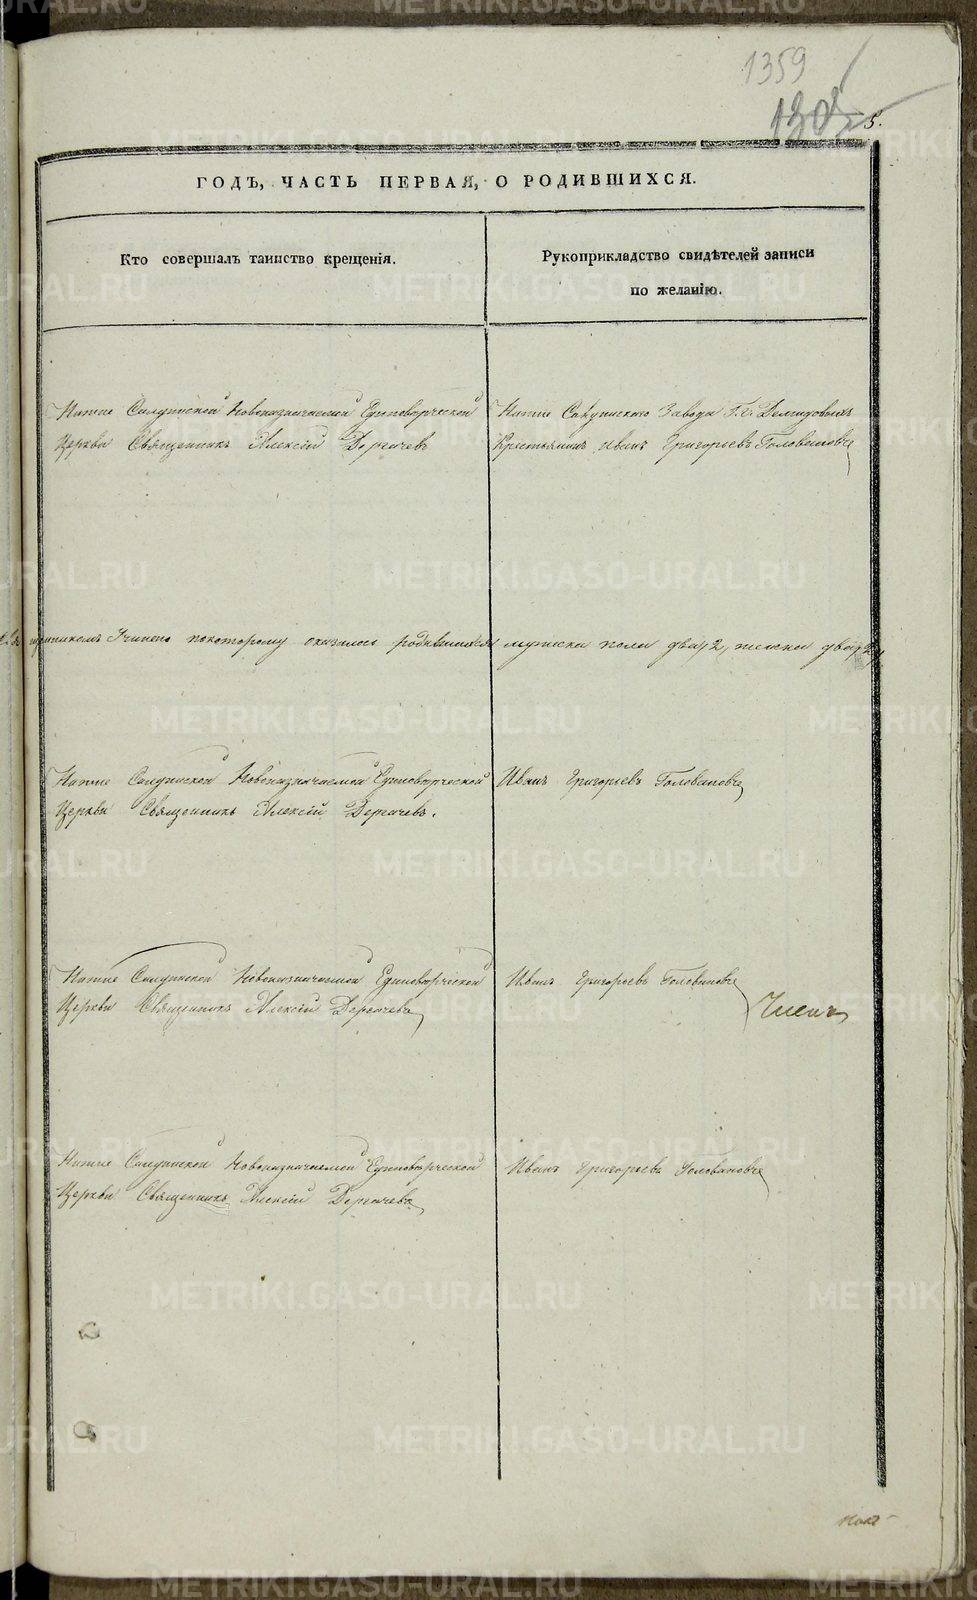 1359
130
5.
ГОДЪ, ЧАСТЬ ПЕРВАЯ, О РОДИВШИХСЯ.
Кто совершалъ таинство крещенія.
Рукоприкладство свидѣтелей записи
по желанію.
Нижне Салдинской Новоназначаемой Единоверческой
Церкви Священникъ Алексій Дергачевъ
Нижне Салдинскаго Завода Г.г. Демидовыхъ
Крестьянинъ Иванъ Григорьевъ Головановъ
Учинено покоторому оказалось родившихся мужска пола два 2, женска два 2,
Нижне Салдинской Новоназначаемой Единоверческой
Церкви Священникъ Алексій Дергачевъ.
Иванъ Григорьевъ Головановъ
Нижне Салдинской Новоназначаемой Единоверческой
Церкви Священникъ Алексій Дергачевъ
Иванъ Григорьевъ Головановъ
Нижне Салдинской Новоназначаемой Единоверческой
Церкви Священникъ Алексій Дергачевъ
Иванъ Григорьевъ Головановъ
METRIKI.GASO-URAL.RU